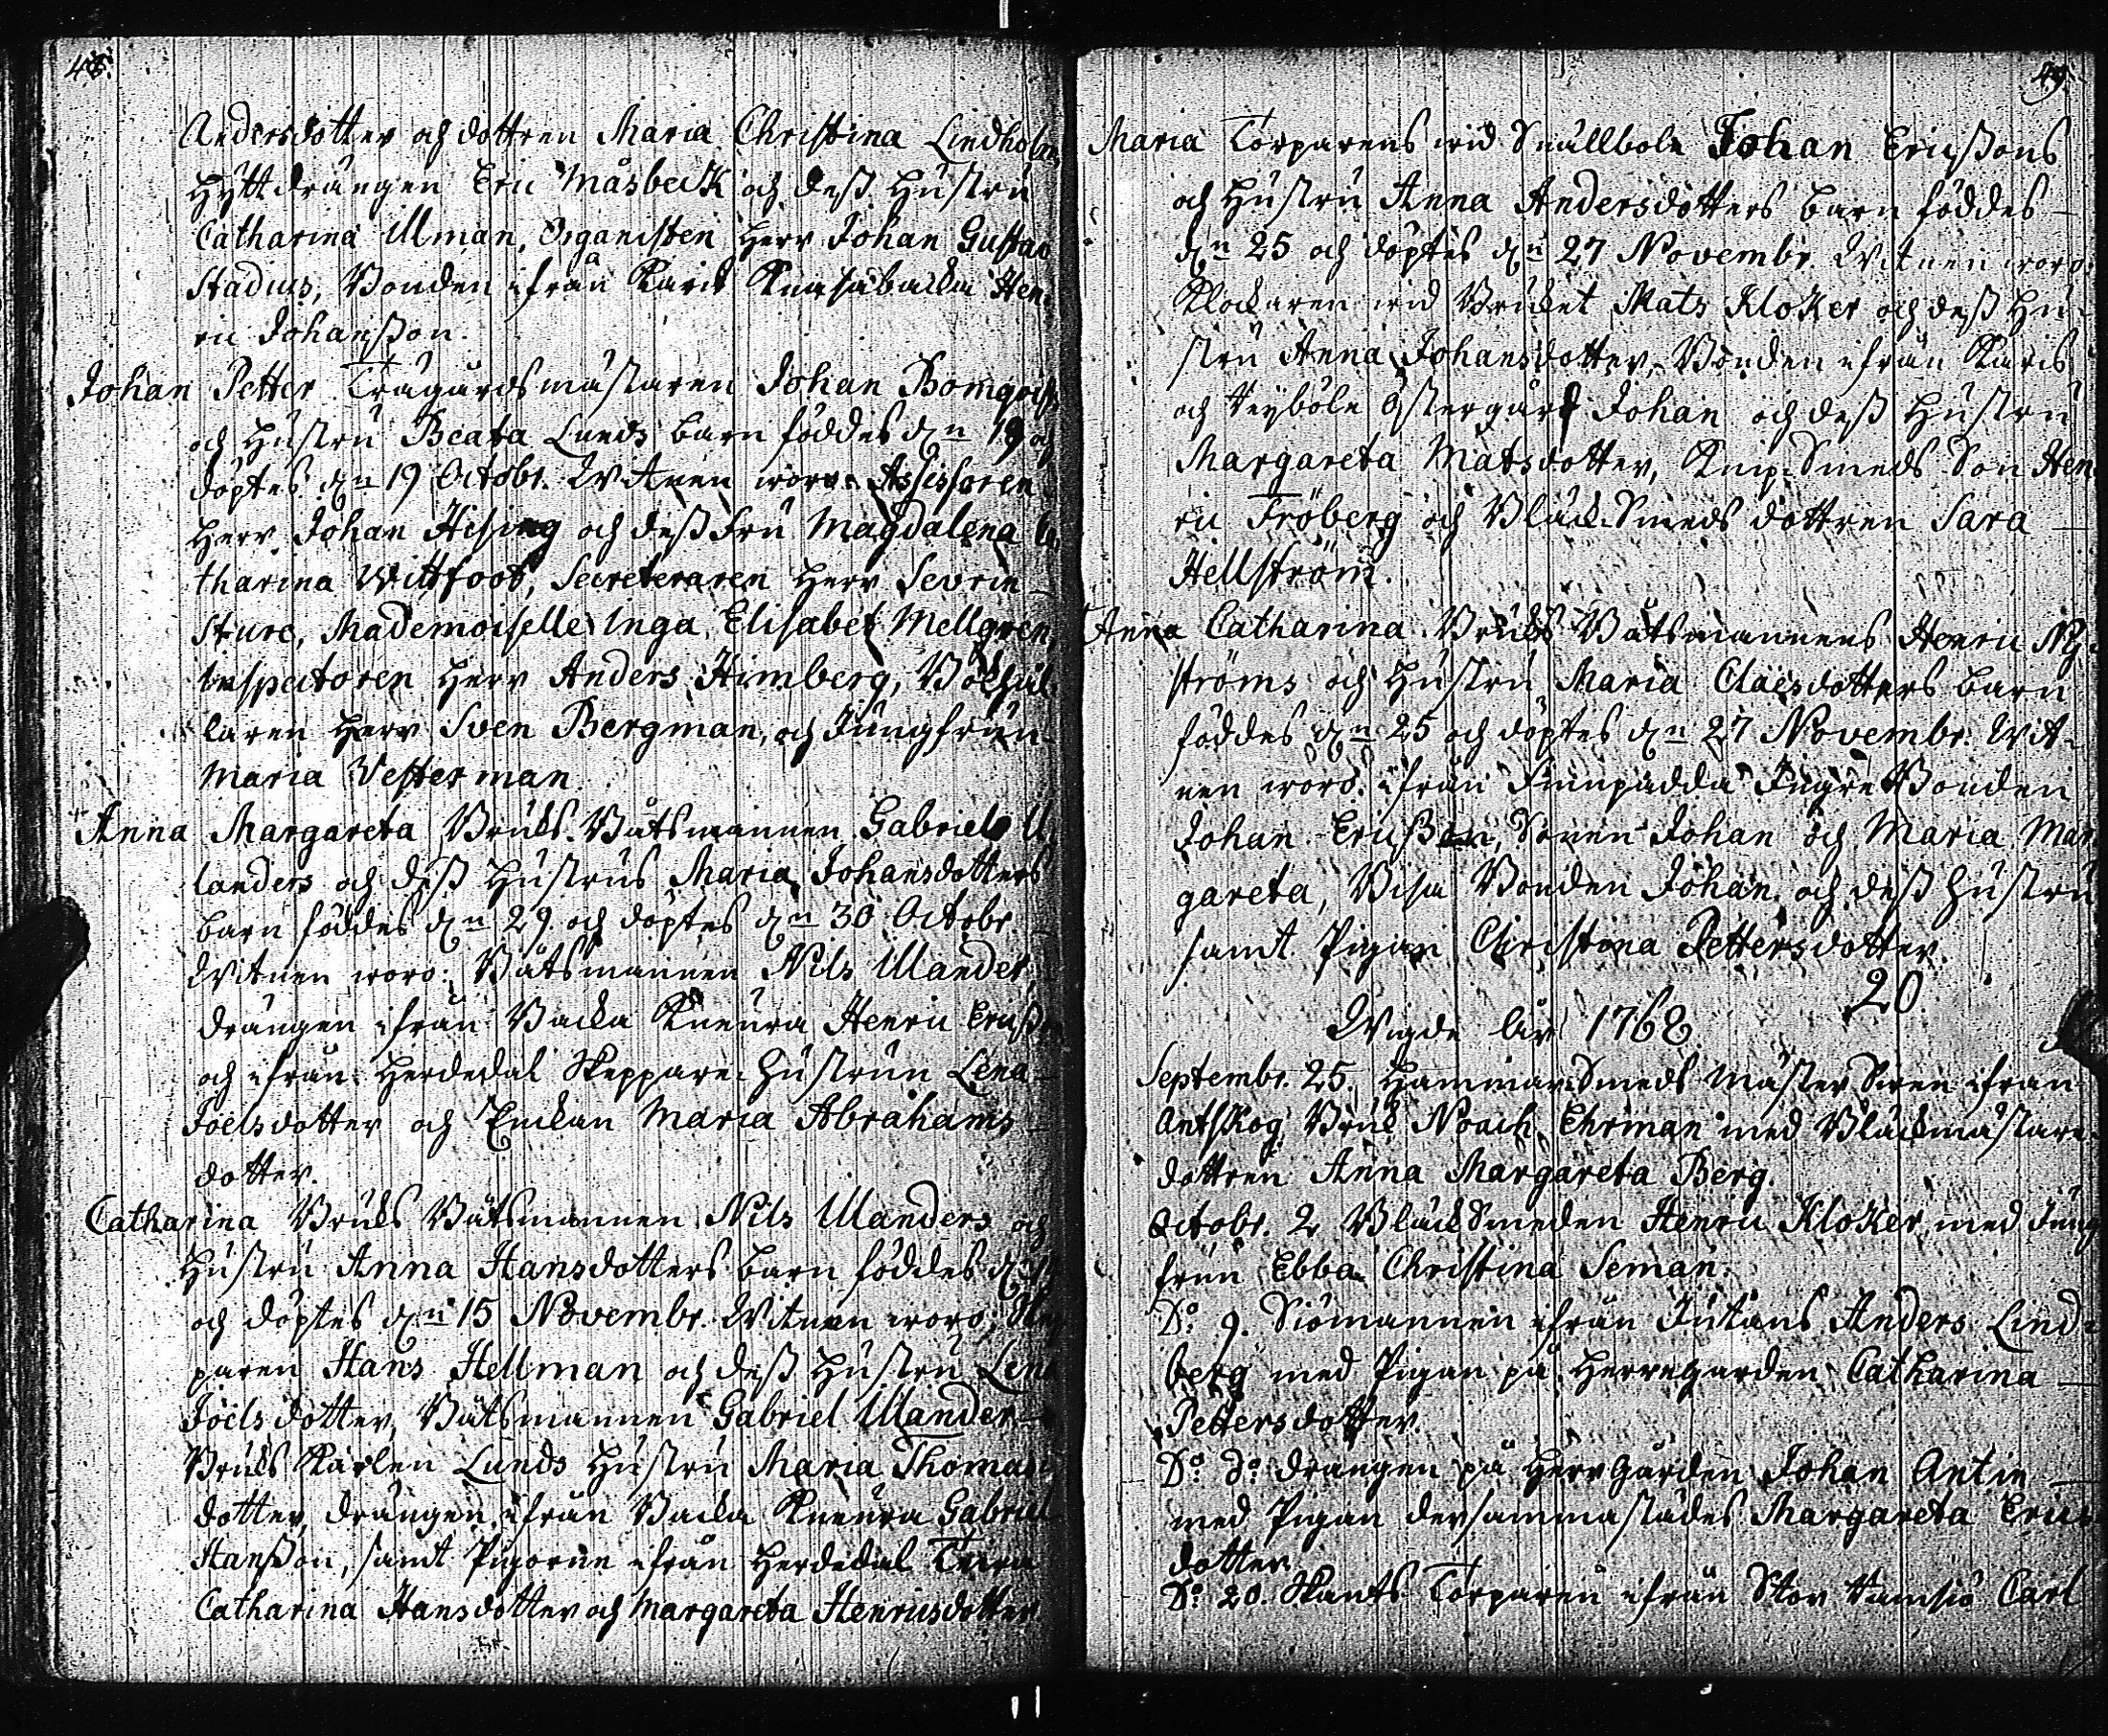 48.
Andersdotter och dottren Maria Christina Lindholm
Hyttdrängen Eric Måsbeck och dess Hustru
Catharina Ulman, Organisten Herr Johan Gustav
Stadius, Bonden ifrån Karis Knasabacka Hen-
ric Johansson.
Johan Petter Trägårdsmästaren Johan Bomqvist
och Hustru Beata Lunds barn föddes d:n 19 och
döptes d:n 19 Octobr. Witnen woro: Assessoren
Herr Johan Hising och dess Fru Magdalena Ca
tharina Wittfoot, Secreteraren Herr Sevrin
Sture, Mademoiselle Inga Elisabet Mellgren,
Inspectoren Herr Anders Himberg, Bokhål
laren Herr Sven Bergman, och Jungfrun
Maria Vesterman
Anna Margareta Bruks-Båtsmannen Gabriel U
landers och dess Hustrus Maria Johansdotters
barn föddes d:n 29. och döptes d:n 30 Octobr.
Witnen woro: Båtsmannen Nils Ulander,
drängen ifrån Backa Kneura Henric Ericss
och ifrån Herdedal Skeppare-Hustrun Lena
Joelsdotter och Enckan Maria Abrahams
dotter.
Catharina Bruks Båtsmannen Nils Ulanders och
Hustru Anna Hansdotters barn föddes d:n
och döptes d:n 15 Novembr. Witnen woro, Skep
paren Hans Hellman och dess Hustru Lena
Joelsdotter, Båtsmannen Gabriel Ulander
Bruks Karlen Lunds Hustru Maria Thomas
dotter, drängen ifrån Backa Kneura Gabriel
Hansson, samt Pigorne ifrån Herdedal
Catharina Hansdotter och Margareta Henricsdotter
49.
Maria Torparens wid Snällbole Johan Ericssons
och Hustru Anna Andersdotters barn föddes
d:n 25 och döptes d:n 27 Novembr. Witnen woro:
Klockaren wid Bruket Mats Kloker och dess Hu-
stru Anna Johansdotter, Bonden ifrån Karis
och Heybôle Östergård Johan och dess Hustru
Margareta Matsdotter, Knip-Smeds Son Hen
ric Fröberg och Bläck-Smeds dottren Sara
Hellström.
Anna Catharina Bruks Båtsmannens Henric Ny-
ströms och Hustru Maria Claesdotters barn
föddes d:n 25 och döptes d:n 27 Novembr. Wit-
nen woro: ifrån Finnpadda Ingre Bonden
Johan Ericsson, Sonen Johan och Maria Mar
gareta, Bisa Bonden Johan och dess Hustru
samt Pigan Christina Pettersdotter.
20
Wigde åhr 1768.
Septembr. 25. Hammar-Smeds Mäster Swen ifrån
Antskog Bruk Noach Ehrman med Bläckmästare
dottren Anna Margareta Berg.
Octobr. 2 Bläck Smeden Henric Kloker med Jung
frun Ebba Christina Seman.
D:o 9. Siömannen ifrån Jutans Anders Lind-
berg med Pigan på Herregarden Catharina
Pettersdotter.
D:o d:o drängen på Herrgården Johan Antin
med Pigan dersammastädes Margareta Erics
dotter
D:o 20. Torparen ifrån Stor Ramsiö Carl